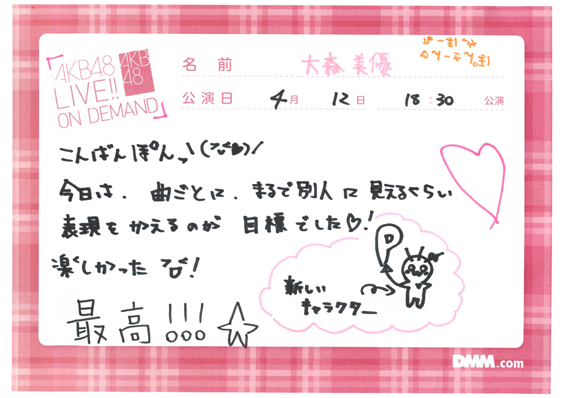 AKB48
LIVE!!
ON DEMAND
AKB
48
名前 大森美優
公演日 4月 12日 18:30 公演
こんばんぽんっ
今日は、曲ごとに、まるで別人に見えるくらい
表現をかえるのが 目標でした♡!
楽しかった!
最高!!!☆
P
新しい
キャラクター
DMM.com